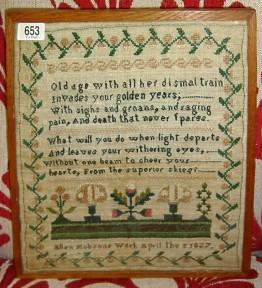 653
Old age with all her dismal train
Invades your golden years;
With sighs and groans, and raging
pain, And death that never spares.
What will you do when light departs
And leaves your withering eyes,
without one beam to cheer your
hearts, From the superior skies:
Ellen Hobsons Work April The 5 1827